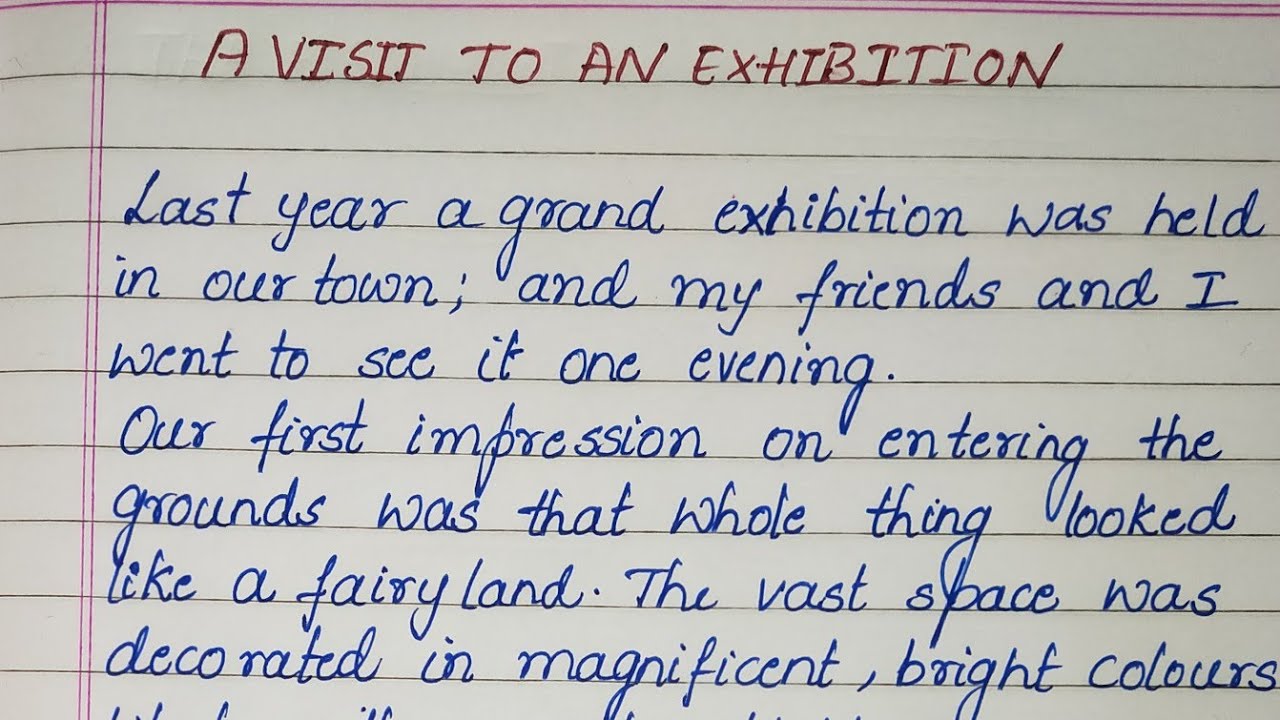 A VISIT TO AN EXHIBITION
Last year a grand exhibition was held
in our town; and my friends and I
went to see it one evening.
Our first impression on entering the
grounds was that whole thing looked
like a fairy land. The vast space was
decorated in magnificent, bright colours